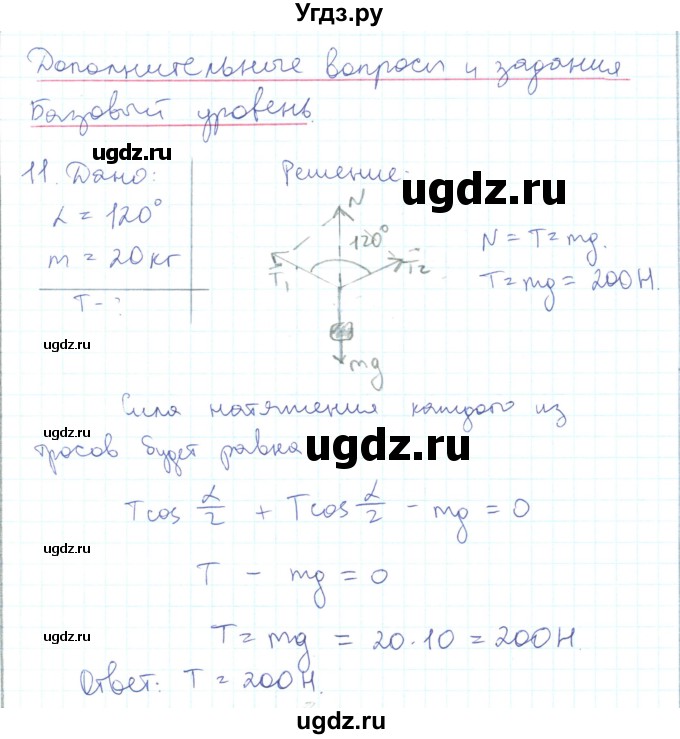 Угдз.ру
Дополнительные вопросы и задания
Базовый уровень.
ugdz.ru
11. Дано:
Решение:
ugdz.ru
α = 120°
m = 20 кг
T - ?
N
120°
T₁
T₂
mg
N = T = mg.
T = mg = 200 Н.
ugdz.ru
ugdz.ru
Сила натяжения каждого из
тросов будет равна
ugdz.ru
ugdz.ru
T cos α/2 + T cos α/2 - mg = 0
ugdz.ru
T - mg = 0
T = mg = 20·10 = 200 Н.
ugdz.ru
Ответ: T = 200 Н.
ugdz.ru
ugdz.ru